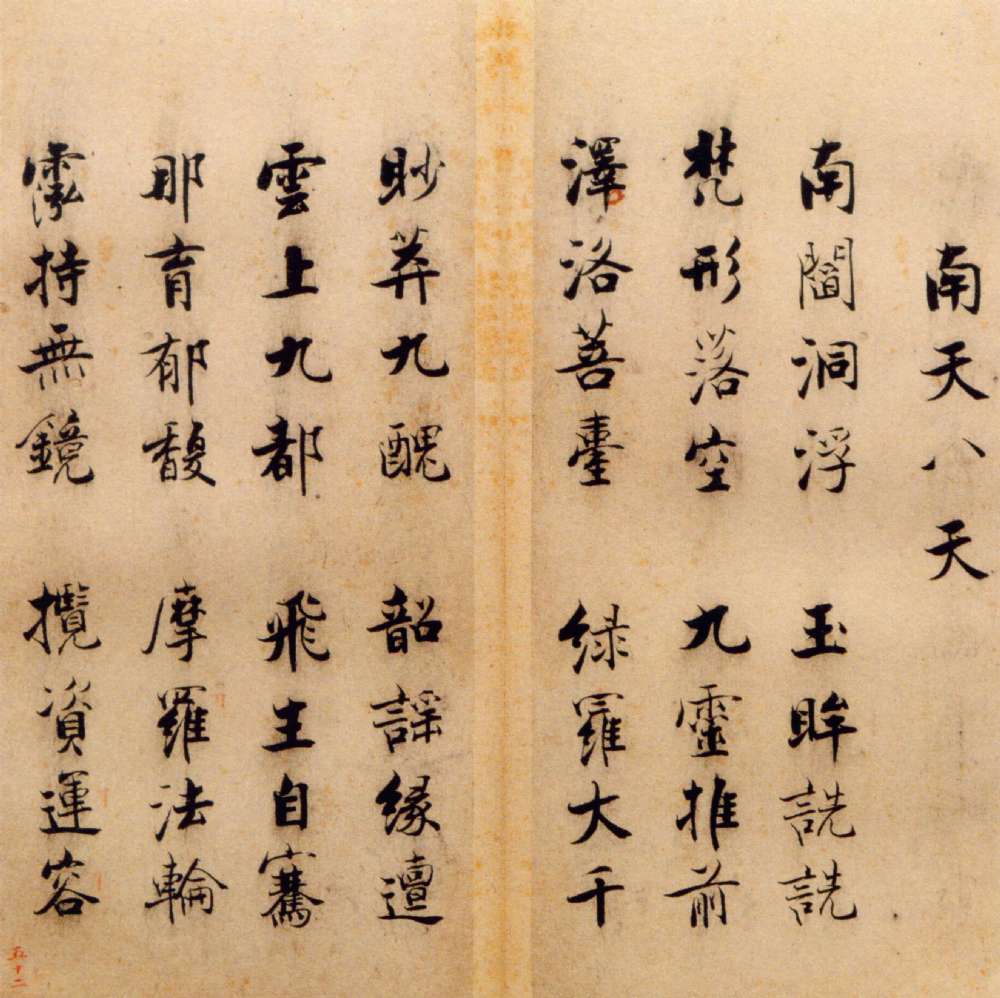 南天八天
南閻洞浮 玉眸詵詵
梵形落空 九靈推前
澤洛菩臺 綠羅大千
眇莽九醜 韶謠緣邅
雲上九都 飛生自騫
那育郁馥 摩羅法輪
霐持無鏡 攬資運容
五十二